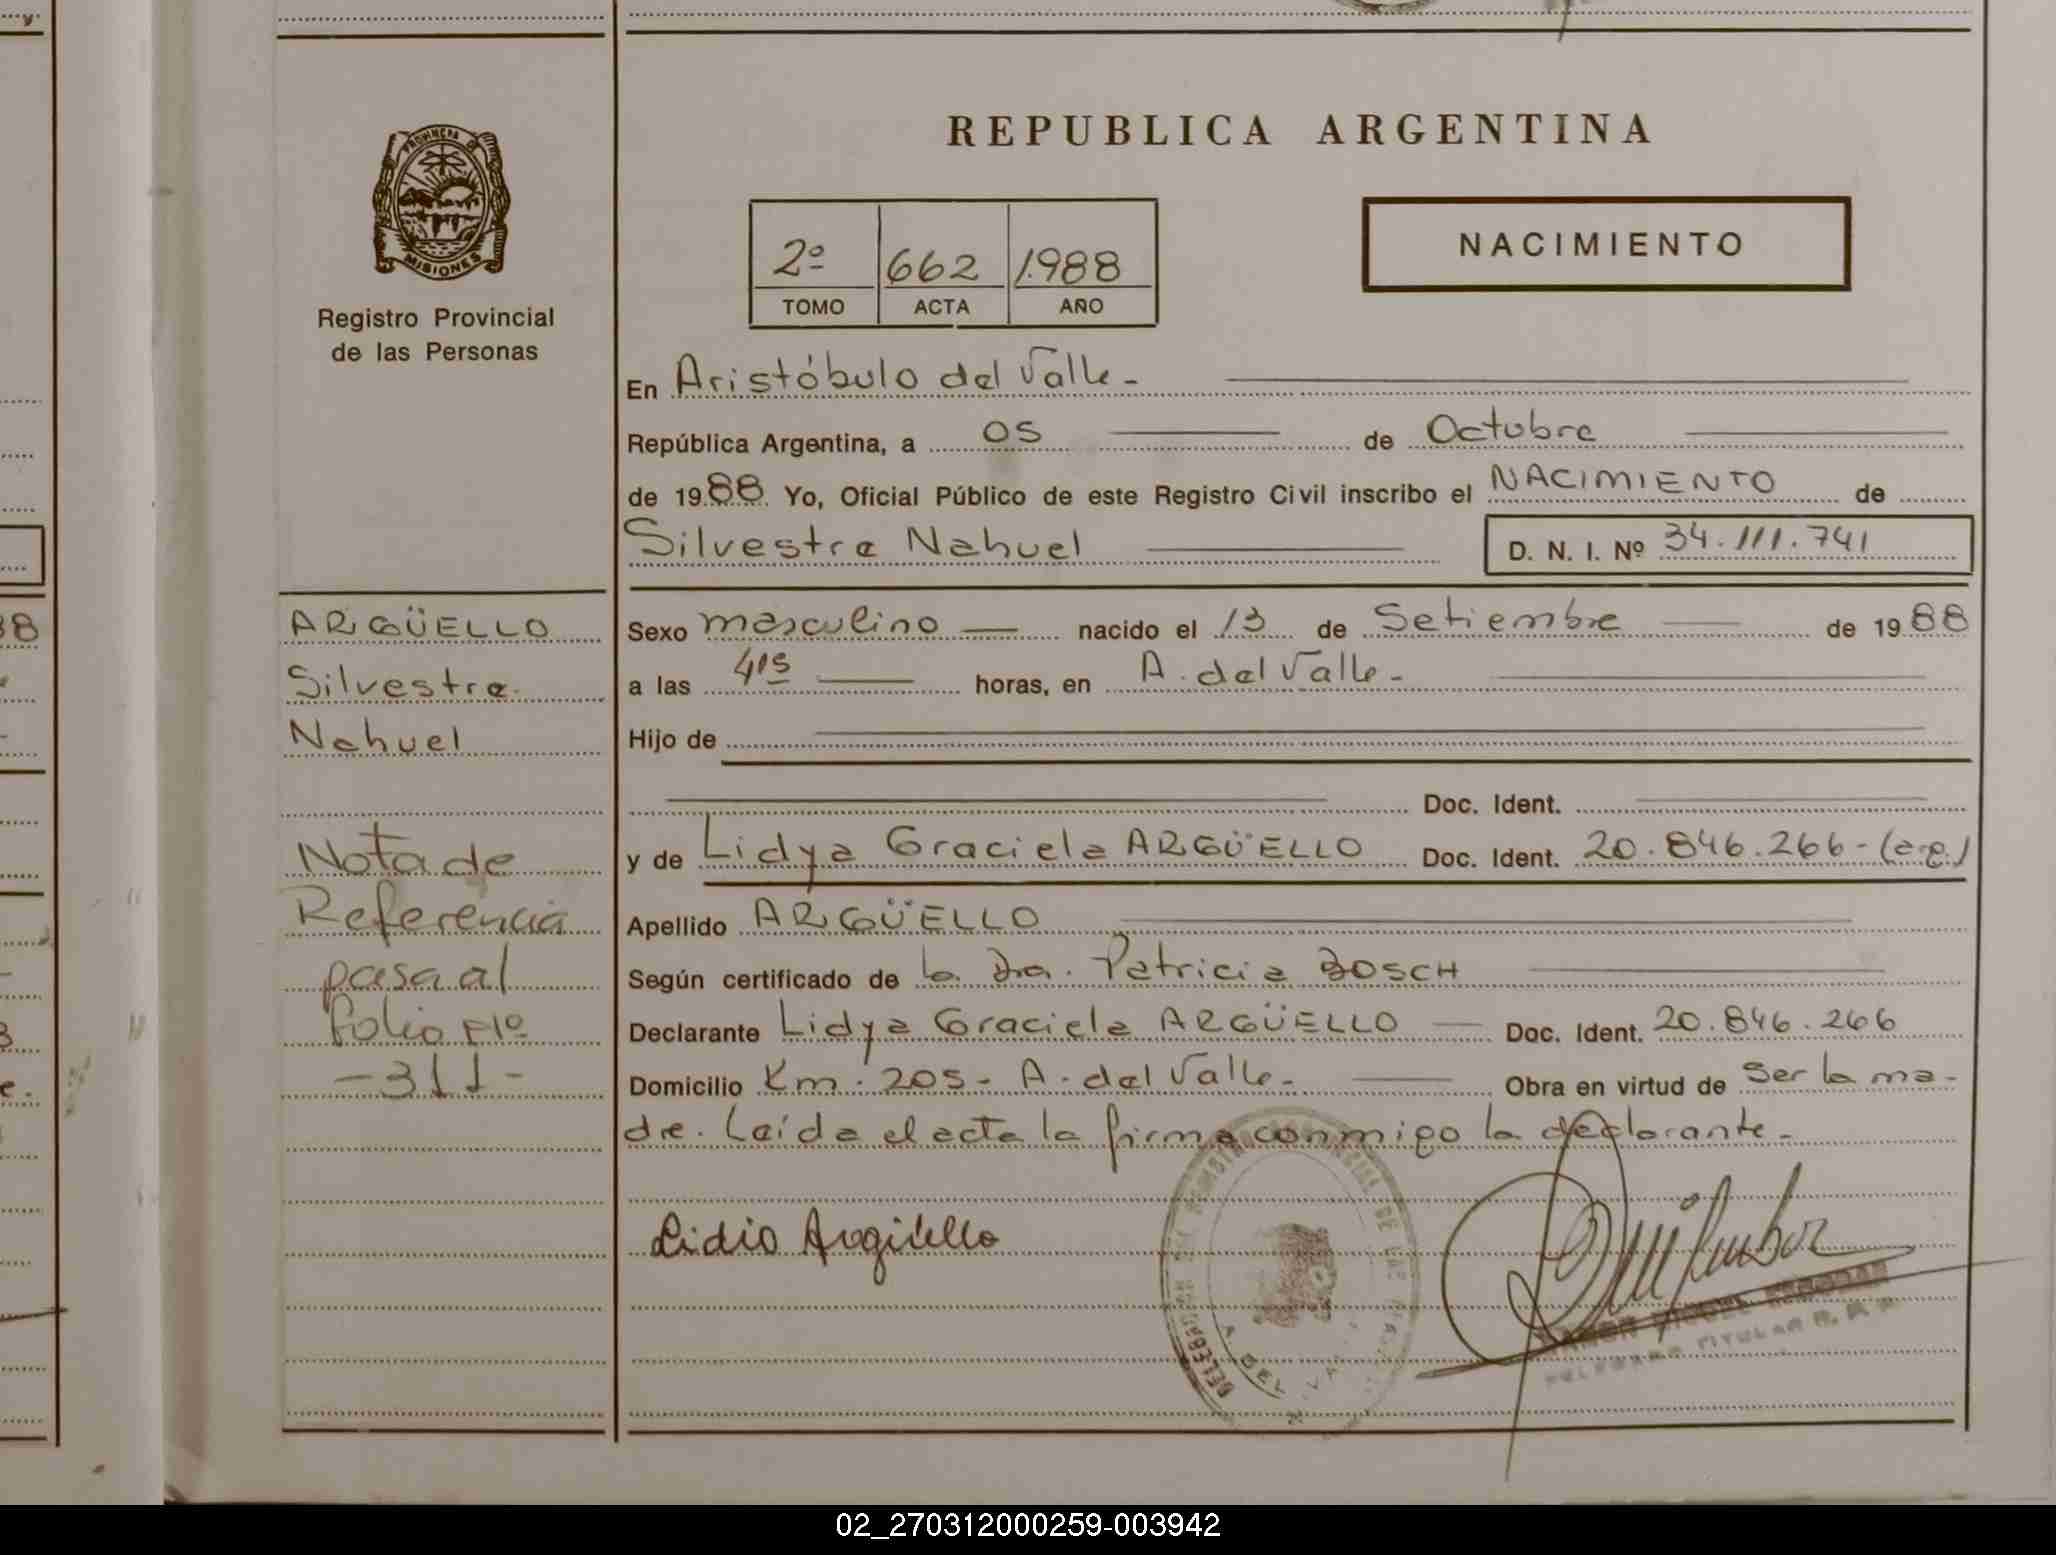 REPUBLICA ARGENTINA
PROVINCIA DE
MISIONES
Registro Provincial
de las Personas
2º 662 1988
TOMO ACTA AÑO
NACIMIENTO
En Aristóbulo del Valle-
República Argentina, a 05 de Octubre
de 1988 Yo, Oficial Público de este Registro Civil inscribo el NACIMIENTO de
Silvestre Nahuel D. N. I. Nº 34.111.741
ARGÜELLO
Silvestre
Nahuel
Nota de
Referencia
pasa al
folio Nº
-311-
Sexo masculino nacido el 13 de Setiembre de 1988
a las 4:15 horas, en A. del Valle-
Hijo de
Doc. Ident.
y de Lidya Graciela ARGÜELLO Doc. Ident. 20.846.266-(arg.)
Apellido ARGÜELLO
Según certificado de la Dra. Patricia BOSCH
Declarante Lidya Graciela ARGÜELLO Doc. Ident. 20.846.266
Domicilio Km. 205- A. del Valle- Obra en virtud de Ser la ma-
dre. Leída el acta la firma conmigo la declarante-
Lidia Argüello
A. DEL VALLE
TITULAR R. P. P.
88
02_270312000259-003942